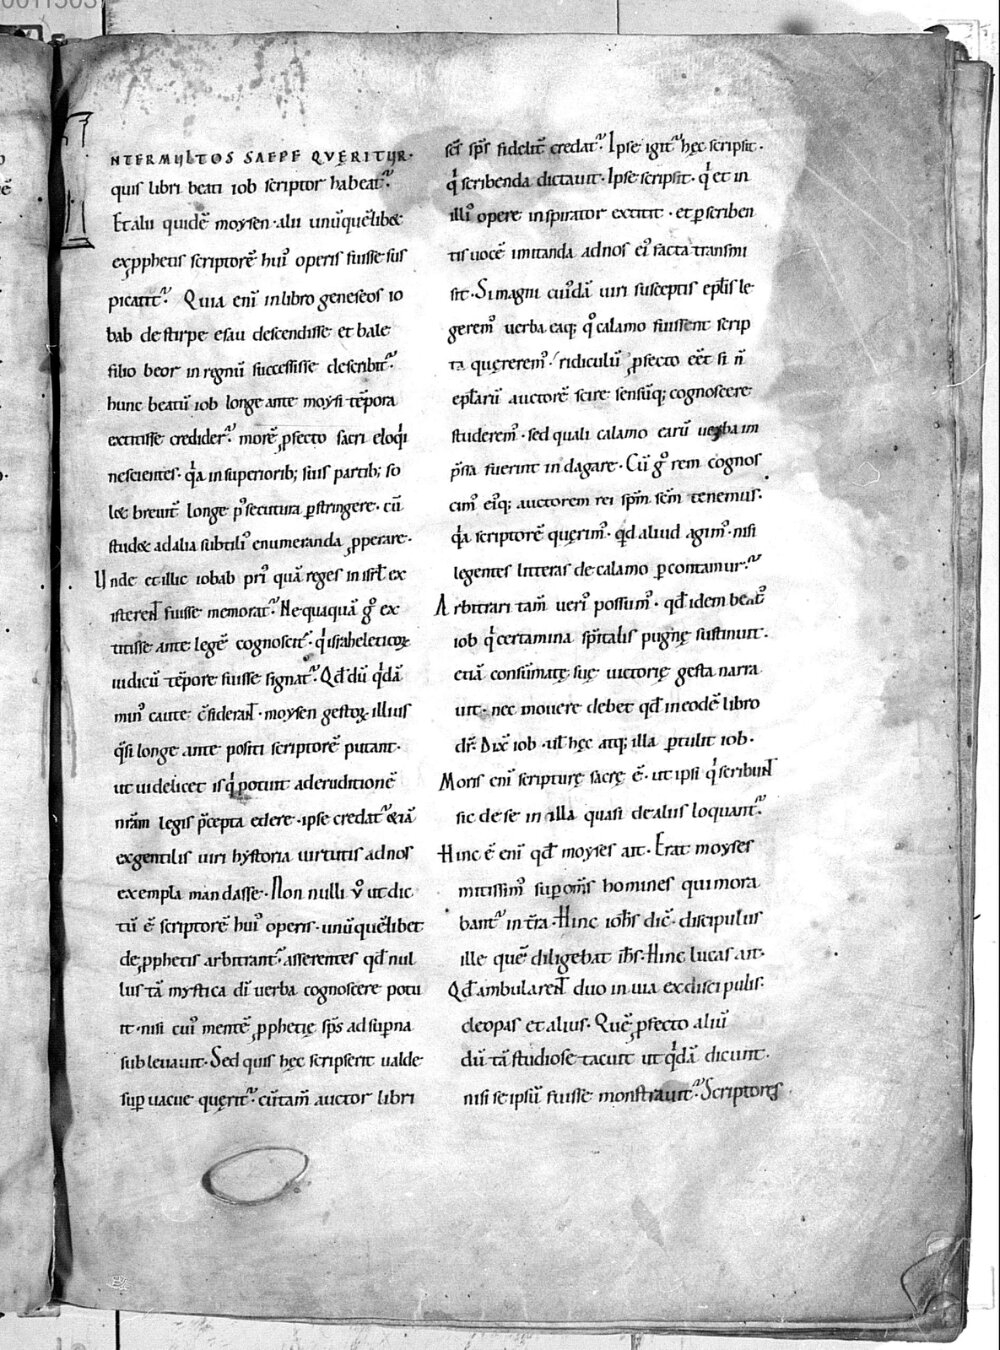 INTER MVLTOS SAEPE QVERITVR·
quis libri beati iob scriptor habeat᷑·
Et alii quidē moysen· alii unūquēlib&
ex ꝓphetis scriptorē hui᷒ operis fuisse sus
picant᷑· Quia eni᷒ in libro geneseos io
bab de stirpe esau descendisse et bale
filio beor in regnū successisse describit᷑·
hunc beatū iob longe ante moysi tēpora
extitisse credider᷑· morē ꝓfecto sacri eloqͥi
nescientes· qͥa in superiorib; suis partib; so
l& breuit̄ longe p᷒ secutura ꝑstringere· cū
stud& ad alia subtili᷒ enumeranda ꝓperare·
Unde et illic iobab pri᷒ quā reges in isrl̄ ex
isterent fuisse memorat᷑· Nequaquā gͦ ex
titisse ante legē cognoscit᷑· qͥ israheleticoꝝ
iudicū tēpore fuisse signat᷑· Qd̄ dū qͥdā
min᷒ caute c̄siderant· moysen gestoꝝ illius
qͣsi longe ante positi scriptorē putant·
ut uidelicet is qͥ potuit ad eruditionē
nr̄am legis p̄cepta edere· ipse credat᷑ &iā
ex gentilis uiri hystoria uirtutis ad nos
exempla mandasse· Non nulli v̊ ut dic
tū ē scriptorē hui᷒ operis· unūquēlibet
de ꝓphetis arbitrant᷑· asserentes qd̄ nul
lus tā mystica dī uerba cognoscere potu
it· nisi cui᷒ mentē ꝓphetię sp̄s ad suꝑna
subleuauit· Sed quis hęc scripserit ualde
suꝑuacue quęrit᷑· cū tam̄ auctor libri
sc̄s sp̄s fidelit̄ credat᷑· Ipse igit᷑ hęc scripsit·
qͥ scribenda dictauit· Ipse scripsit· qͥ et in
illi᷒ opere inspirator extitit· et ꝑ scriben
tis uocē imitanda ad nos ei᷒ facta transmi
sit· Si magni cui᷒dā uiri susceptis epl̄is le
gerem᷒ uerba eaq; qͦ calamo fuissent scrip
ta quęrerem᷒· ridiculū ꝓfecto eēt si n̄
epl̄arū auctorē scire sensūq; cognoscere
studerem᷒· sed quali calamo earū uerba im
p̄ssa fuerint indagare· Cū gͦ rem cognos
cim᷒ eiq; auctorem rei sp̄m sc̄m tenemus·
qͥa scriptorē querim᷒· qd̄ aliud agim᷒· nisi
legentes litteras de calamo ꝑcontamur᷑
Arbitrari tam̄ ueri᷒ possum᷒· qd̄ idem beat᷒
iob qͥ certamina sp̄italis pugnę sustinuit·
etiā consūmatę suę uictorię gesta narra
uit· nec mouere debet qd̄ in eodē libro
dr̄· Dix̄ iob· ul̄ hęc atq; illa ꝑtulit iob·
Moris eni᷒ scripturę sacrę ē· ut ipsi qͥ scribunt
sic de se in illa quasi de aliis loquant᷑·
Hinc ē eni᷒ qd̄ moyses ait· Erat moyses
mitissim᷒ suꝑ om̄s homines qui mora
bant᷑ in tr̄a· Hinc ioh̄s dic̄· discipulus
ille quē diligebat ih̄s· Hinc lucas ait·
Qd̄ ambularent duo in uia ex discipulis·
cleopas et alius· Quē ꝓfecto aliū
dū tā studiose tacuit ut qͥdā dicunt·
nisi se ipsū fuisse monstrauit᷑· Scriptores